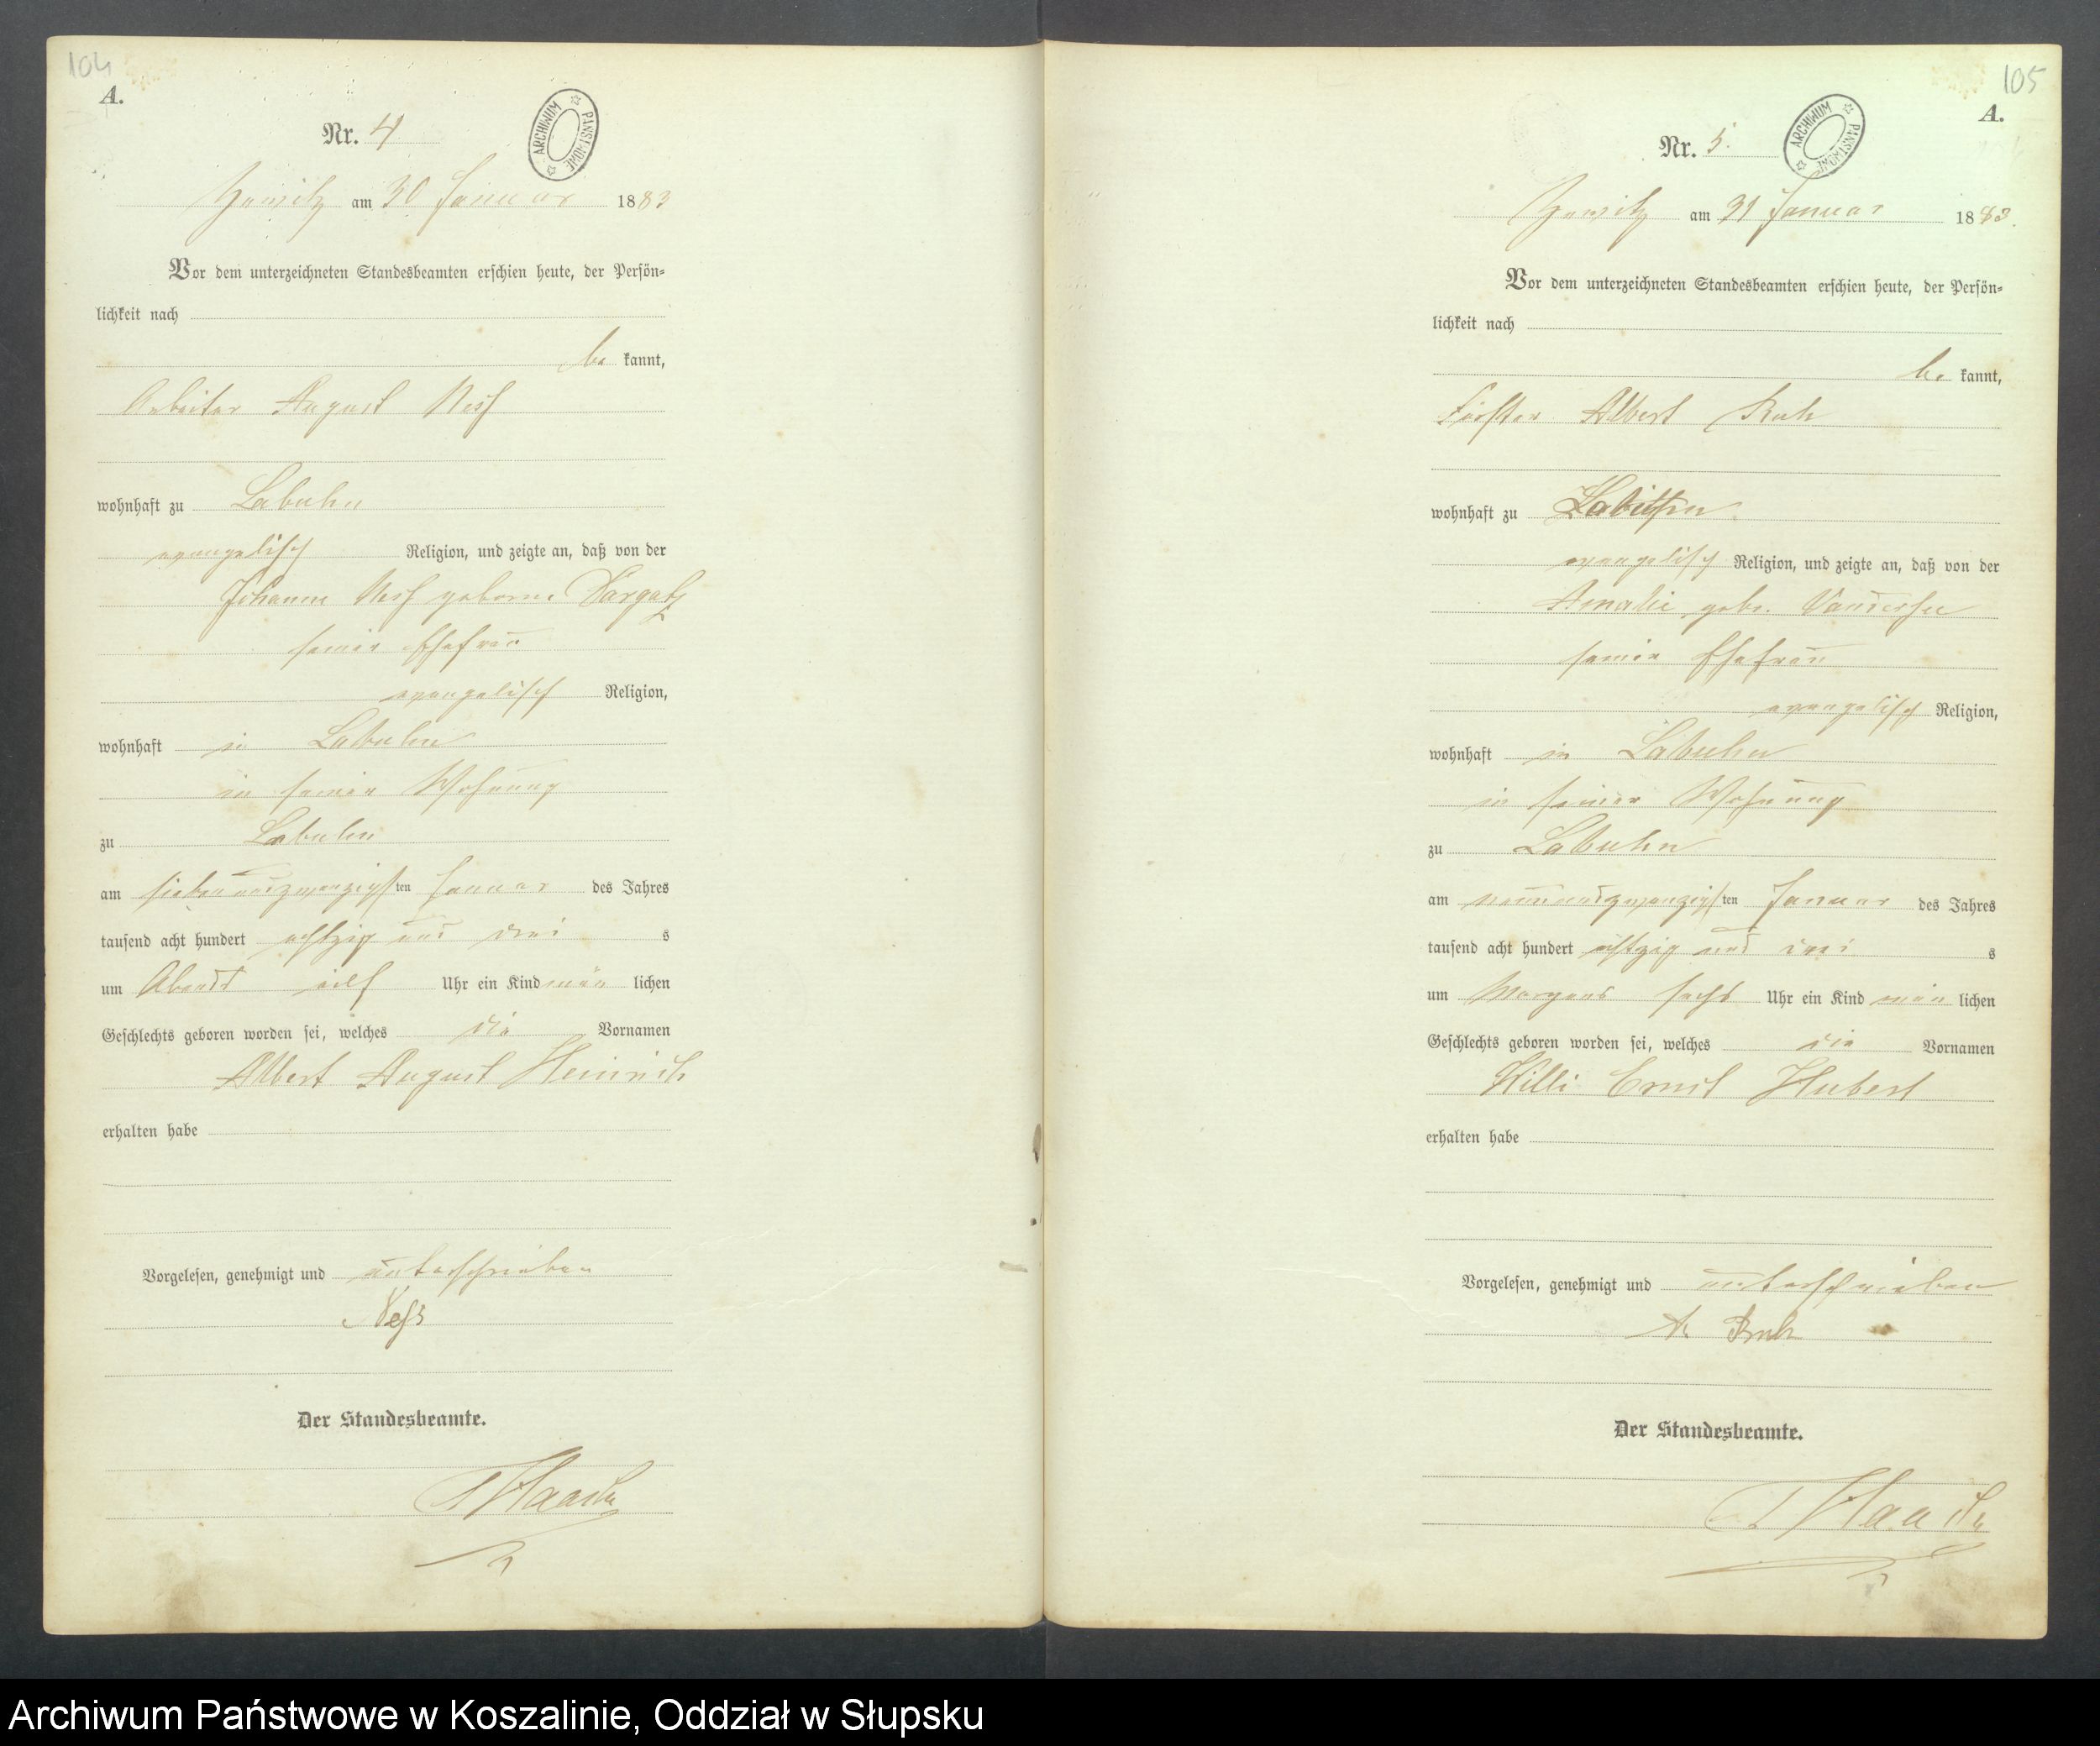 104
A.
Nr. 4
ARCHIWUM PAŃSTWOWE
Zewitz am 30 Januar 1883
Vor dem unterzeichneten Standesbeamten erschien heute, der Persön-
lichkeit nach
be kannt,
Arbeiter August
wohnhaft zu Labuhn
evangelisch Religion, und zeigte an, daß von der
Johanne geborne Dargatz
seiner Ehefrau
evangelisch Religion,
wohnhaft in Labuhn
in seiner Wohnung
zu Labuhn
am siebenundzwanzigsten Januar des Jahres
tausend acht hundert achtzig und drei s
um Abends elf Uhr ein Kind män lichen
Geschlechts geboren worden sei, welches die Vornamen
Albert August Heinrich
erhalten habe
Vorgelesen, genehmigt und unterschrieben
Neß
Der Standesbeamte.
105
A.
Nr. 5.
ARCHIWUM PAŃSTWOWE
Zewitz am 31 Januar 1883.
Vor dem unterzeichneten Standesbeamten erschien heute, der Persön-
lichkeit nach
be kannt,
Förster Albert Ruh
wohnhaft zu Labuhn
evangelisch Religion, und zeigte an, daß von der
Amalie gebr.
seiner Ehefrau
evangelisch Religion,
wohnhaft in Labuhn
in seiner Wohnung
zu Labuhn
am neunundzwanzigsten Januar des Jahres
tausend acht hundert achtzig und drei s
um Morgens sechs Uhr ein Kind män lichen
Geschlechts geboren worden sei, welches die Vornamen
Willi Ernst Hubert
erhalten habe
Vorgelesen, genehmigt und unterschrieben
A. Ruh
Der Standesbeamte.
Archiwum Państwowe w Koszalinie, Oddział w Słupsku